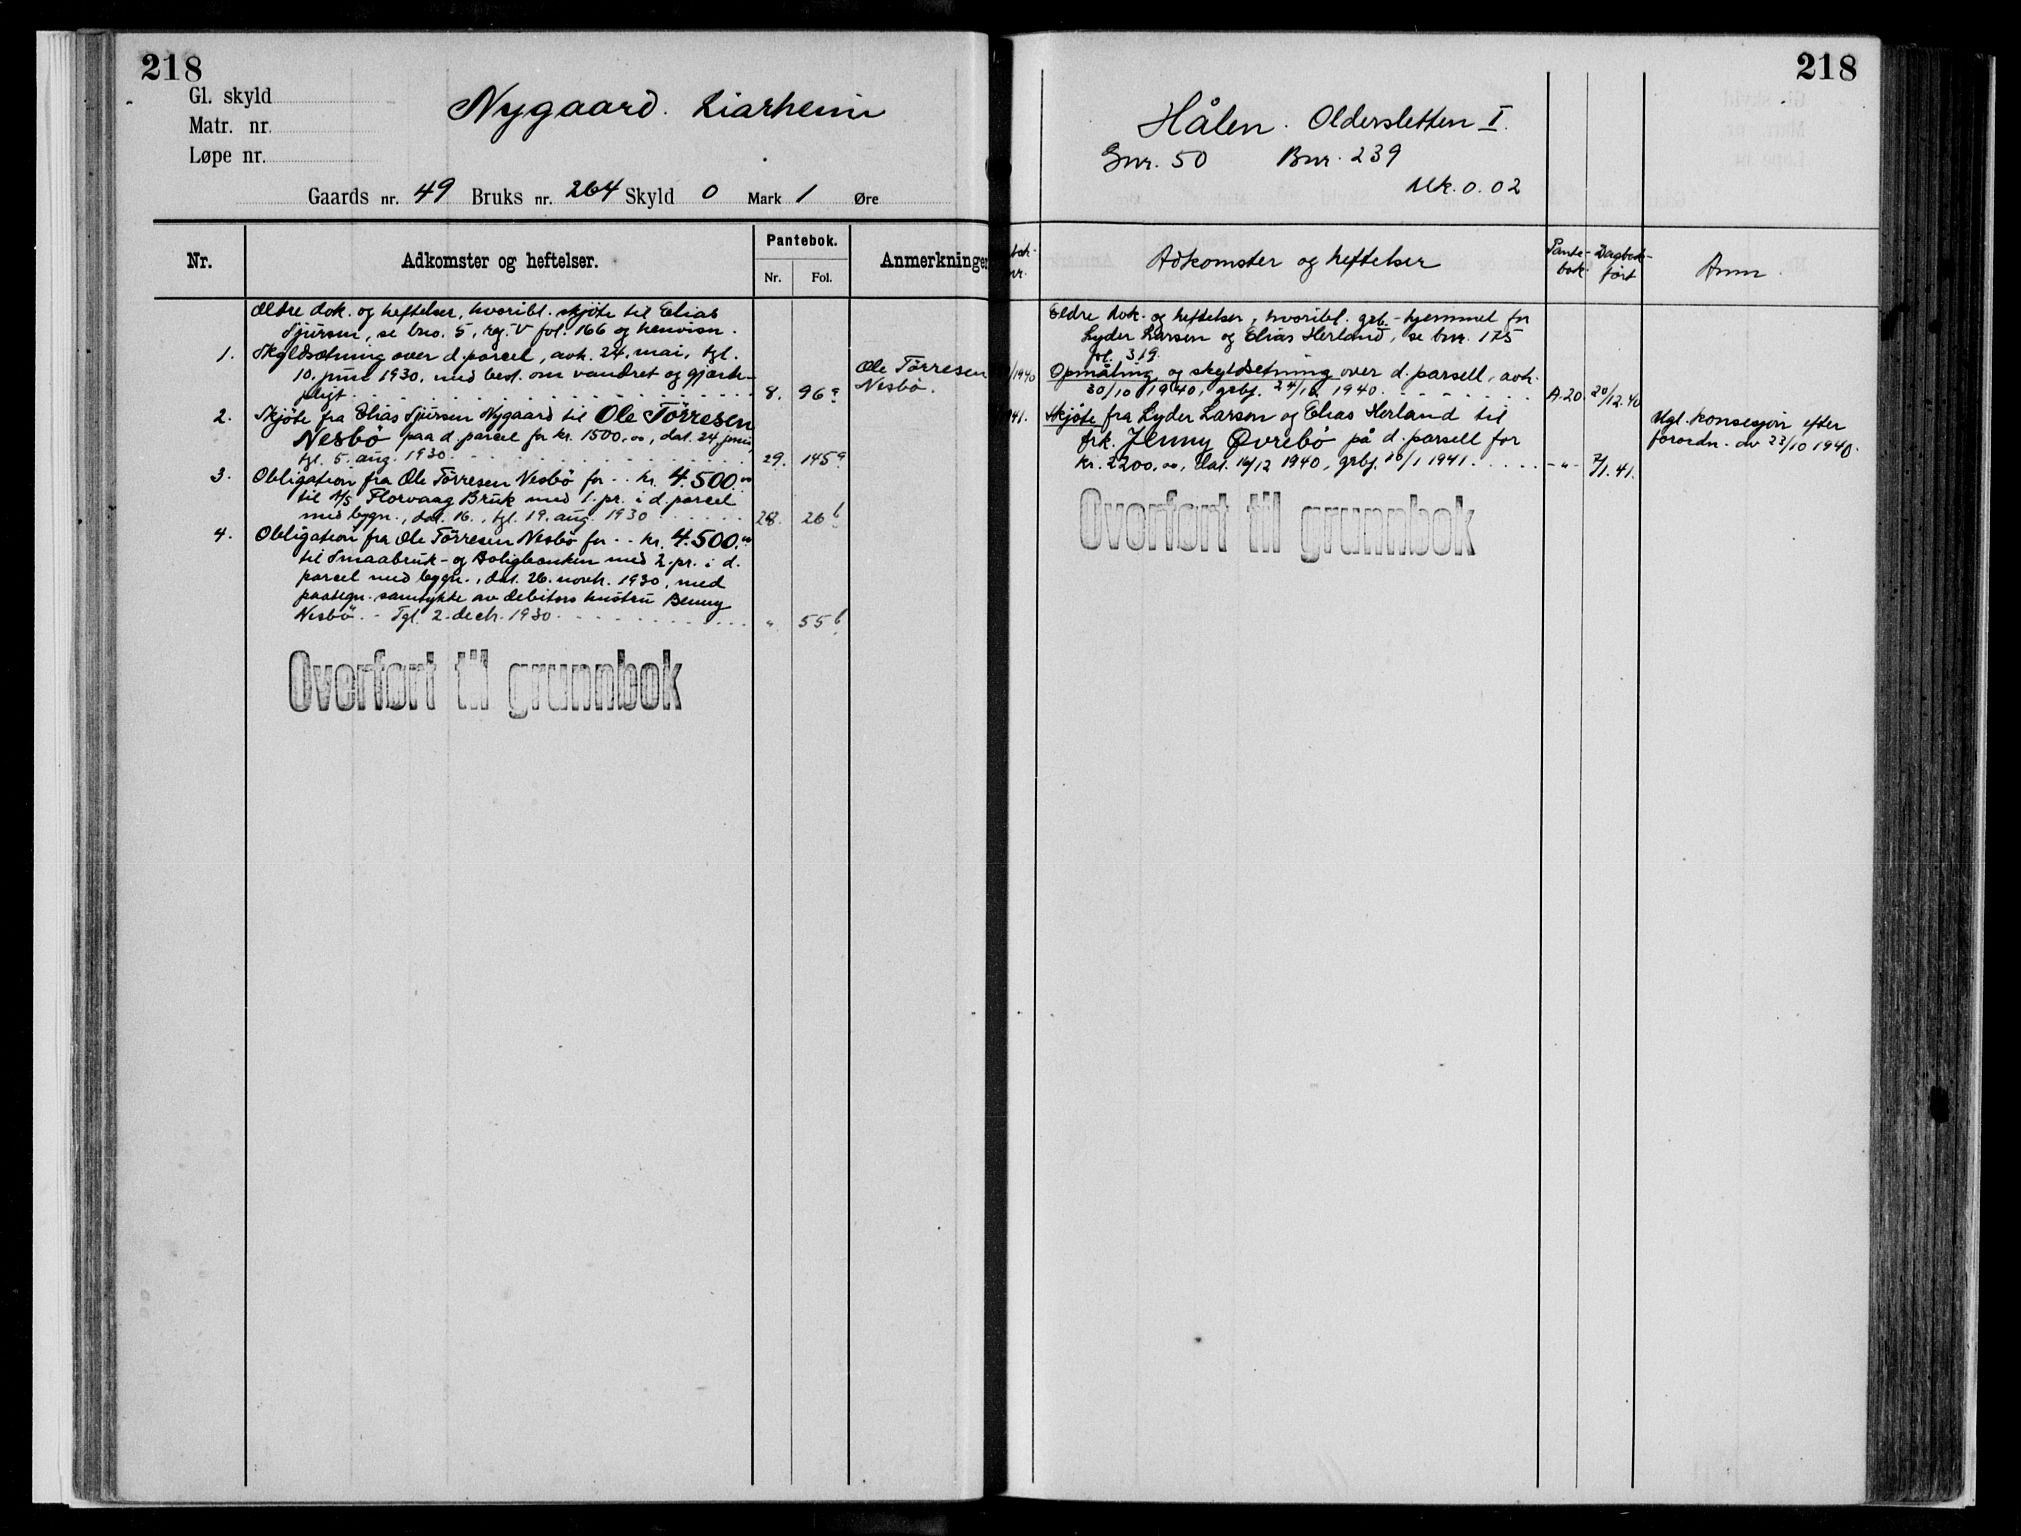 218
Gl. skyld
Matr. nr.
Løpe nr.
Nygaard. Liarheim
Gaards nr. 49 Bruks nr. 264 Skyld 0 Mark 1 Øre
Nr.
Adkomster og heftelser.
Pantebok.
Nr. Fol.
Anmerkninger
Ældre dok. og heftelser, hvoribl. skjöte til Elias
Sjursen, se bno. 5, reg. V fol. 166 og henvisn.
1. Skyldsætning over d. parcel, avh. 24. mai, tgl.
10. juni 1930, med best. om vandret og gjærde-
pligt. 8. 96a
Ole Törresen
Nesbö.
2. Skjöte fra Elias Sjursen Nygaard til Ole Törresen
Nesbö paa d. parcel for kr. 1500,00, dat. 24 juni,
tgl. 5. aug. 1930. 29. 145a
3. Obligation fra Ole Törresen Nesbö for -- kr. 4.500.00
til A/S Florvaag Bruk med 1. pr. i d. parcel
med bygn., dat. 16., tgl. 19. aug. 1930 28. 26b
4. Obligation fra Ole Törresen Nesbö for -- kr. 4.500.00
til Smaabruk- og Boligbanken med 2. pr. i d.
parcel med bygn., dat. 26. novbr. 1930, med
paategn. samtykke av debitors hustru Benny
Nesbö. - Tgl. 2. decbr. 1930. " 55b
Overført til grunnbok
218
Hålen. Oldersletten I.
Gnr. 50 Bnr. 239
Mk. 0.02
Adkomster og heftelser
Pante-
bok.
Dagbok-
ført
Anm.
Eldre dok. og heftelser, hvoribl. grb.-hjemmel for
Lyder Larsen og Elias Herland, se bnr. 175
fol. 319.
/1940 Opmåling og skyldsetning over d. parsell, avh.
30/10 1940, grbf. 24/12 1940. A.20. 20/12.40
41. Skjöte fra Lyder Larsen og Elias Herland til
frk. Jenny Øvrebö på d. parsell for
kr. 2200,00, dat. 16/12 1940, grbf. 10/1 1941. -"- 7/1.41.
Mgl. konsesjon efter
forordn. av 23/10 1940.
Overført til grunnbok